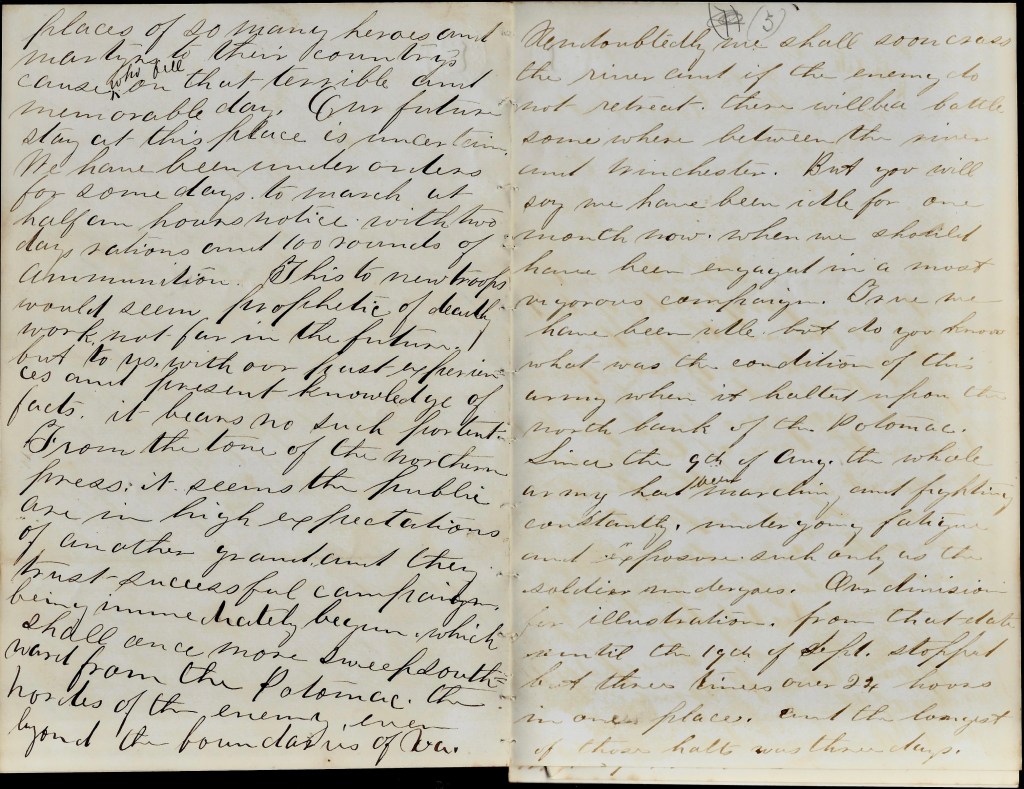 places of so many heroes and
martyrs to their country's
who fell
cause on that terrible and
memorable day. Our future
stay at this place is uncertain.
We have been under orders
for some days. to march at
half an hours notice. with two
days rations and 100 rounds of
ammunition. This to new troops
would seem prophetic of deadly
work, not far in the future,
but to us, with our past experien-
ces and present knowledge of
facts. it bears no such portent.
From the tone of the northern
press; it seems the public
are in high expectations
of another grand, and they
trust successful campaign,
being immediately begun. which
shall once more sweep south-
ward from the Potomac. the
hordes of the enemy, even
beyond the boundaries of Va.
(5)
Undoubtedly we shall soon cross
the river and if the enemy do
not retreat. there will be a battle
some where between the river
and Winchester. But you will
say we have been idle for one
month now. when we should
have been engaged in a most
vigorous campaign. True we
have been idle. but do you know
what was the condition of this
army when it halted upon the
north bank of the Potomac.
Since the 9th of Aug. the whole
been
army had marching and fighting
constantly. undergoing fatigue
and exposure such only as the
soldier undergoes. Our division
for illustration. from that date
until the 19th of Sept. stopped
but three times over 24 hours
in one place. and the longest
of those halts was three days.